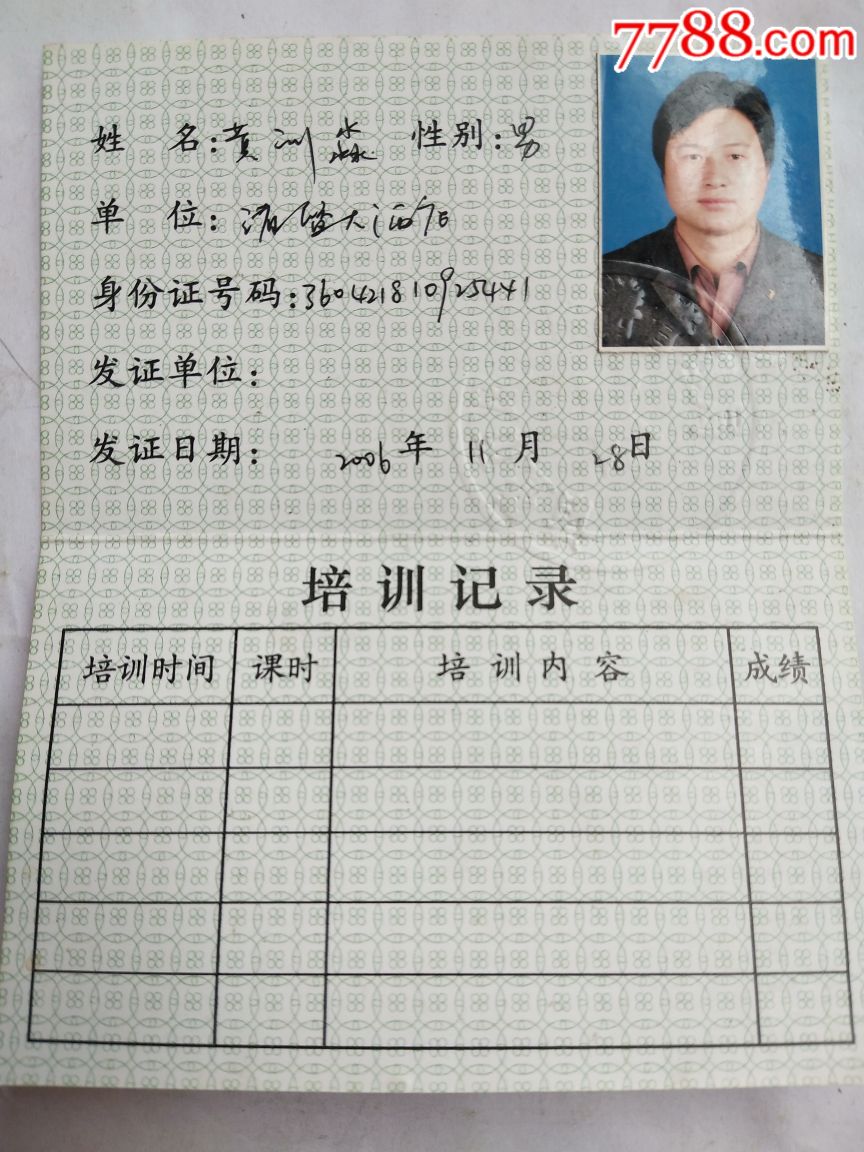 7788.com
姓 名：黄训淼 性别：男
单 位：大酒店
身份证号码：360421810925441
发证单位：
发证日期： 2006年 11月 28日
培训记录
培训时间 课时 培训内容 成绩